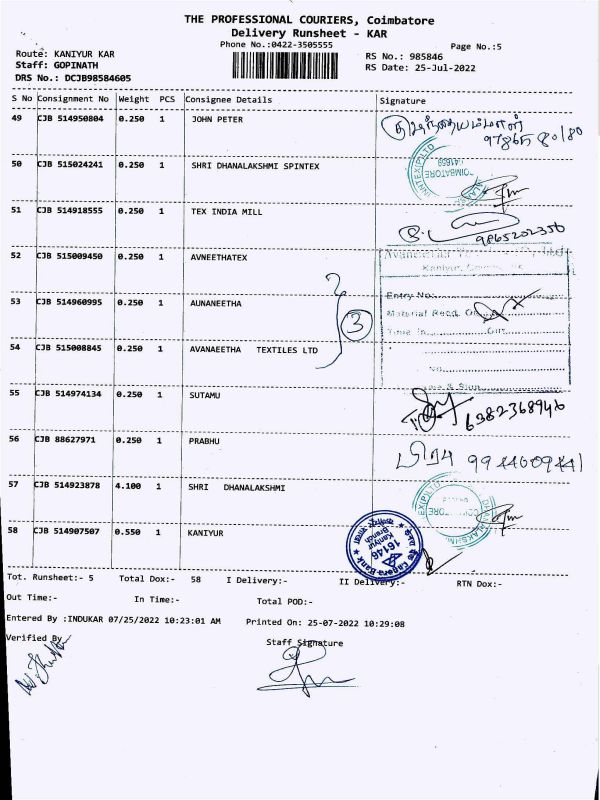 THE PROFESSIONAL COURIERS, Coimbatore
Delivery Runsheet - KAR
Phone No.:0422-3505555
Page No.:5
Route: KANIYUR KAR
RS No.: 985846
Staff: GOPINATH
RS Date: 25-Jul-2022
DRS No.: DCJB98584605
S No Consignment No Weight PCS Consignee Details Signature
49 CJB 514950804 0.250 1 JOHN PETER
50 CJB 515024241 0.250 1 SHRI DHANALAKSHMI SPINTEX
COIMBATORE
51 CJB 514918555 0.250 1 TEX INDIA MILL
9865202356
52 CJB 515009450 0.250 1 AVNEETHATEX
Kaniyur
53 CJB 514960995 0.250 1 AUNANEETHA
Entry No.
Material Recd. On
3
Time In Out
54 CJB 515008845 0.250 1 AVANAEETHA TEXTILES LTD
55 CJB 514974134 0.250 1 SUTAMU
6382368946
56 CJB 88627971 0.250 1 PRABHU
பிரபு 9944609441
57 CJB 514923878 4.100 1 SHRI DHANALAKSHMI
58 CJB 514907507 0.550 1 KANIYUR
Canara Bank
16146
Kaniyur
Branch
Tot. Runsheet:- 5 Total Dox:- 58 I Delivery:- II Delivery:- RTN Dox:-
Out Time:- In Time:- Total POD:-
Entered By :INDUKAR 07/25/2022 10:23:01 AM Printed On: 25-07-2022 10:29:08
Verified By
Staff Signature